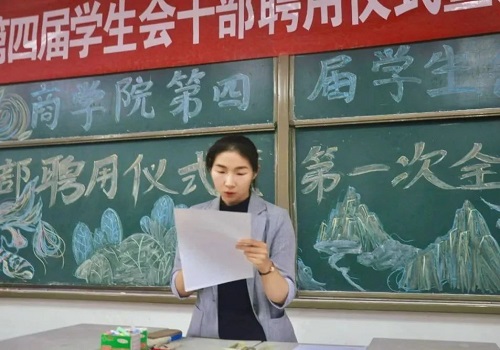 第四届学生会干部聘用仪式暨
商学院第四届学生
部聘用仪式 第一次全